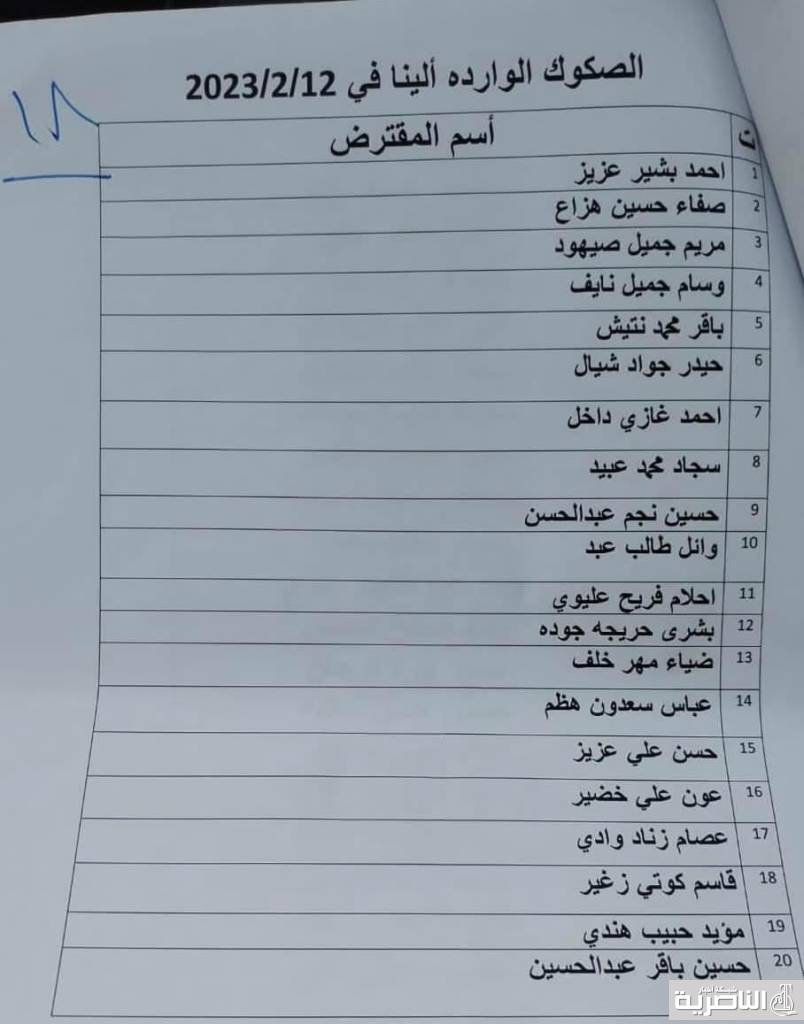 الصكوك الوارده ألينا في 2023/2/12
١٨
ت أسم المقترض
1 احمد بشير عزيز
2 صفاء حسين هزاع
3 مريم جميل صيهود
4 وسام جميل نايف
5 باقر محمد نتيش
6 حيدر جواد شيال
7 احمد غازي داخل
8 سجاد محمد عبيد
9 حسين نجم عبدالحسن
10 وائل طالب عبد
11 احلام فريح عليوي
12 بشرى حريجه جوده
13 ضياء مهر خلف
14 عباس سعدون هظم
15 حسن علي عزيز
16 عون علي خضير
17 عصام زناد وادي
18 قاسم كوتي زغير
19 مؤيد حبيب هندي
20 حسين باقر عبدالحسين
شبكة أخبار
الناصرية